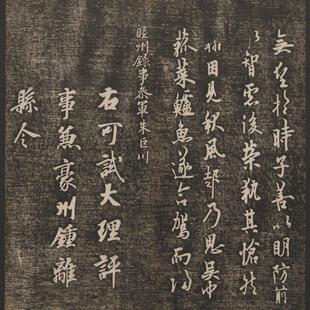 無望於時子善以明防前
以智慮後榮執其愴然
翰因見秋風起乃思吳中
菰菜鱸魚遂命駕而歸
睦州錄事參軍朱巨川
右可試大理評
事兼豪州鍾離
縣令